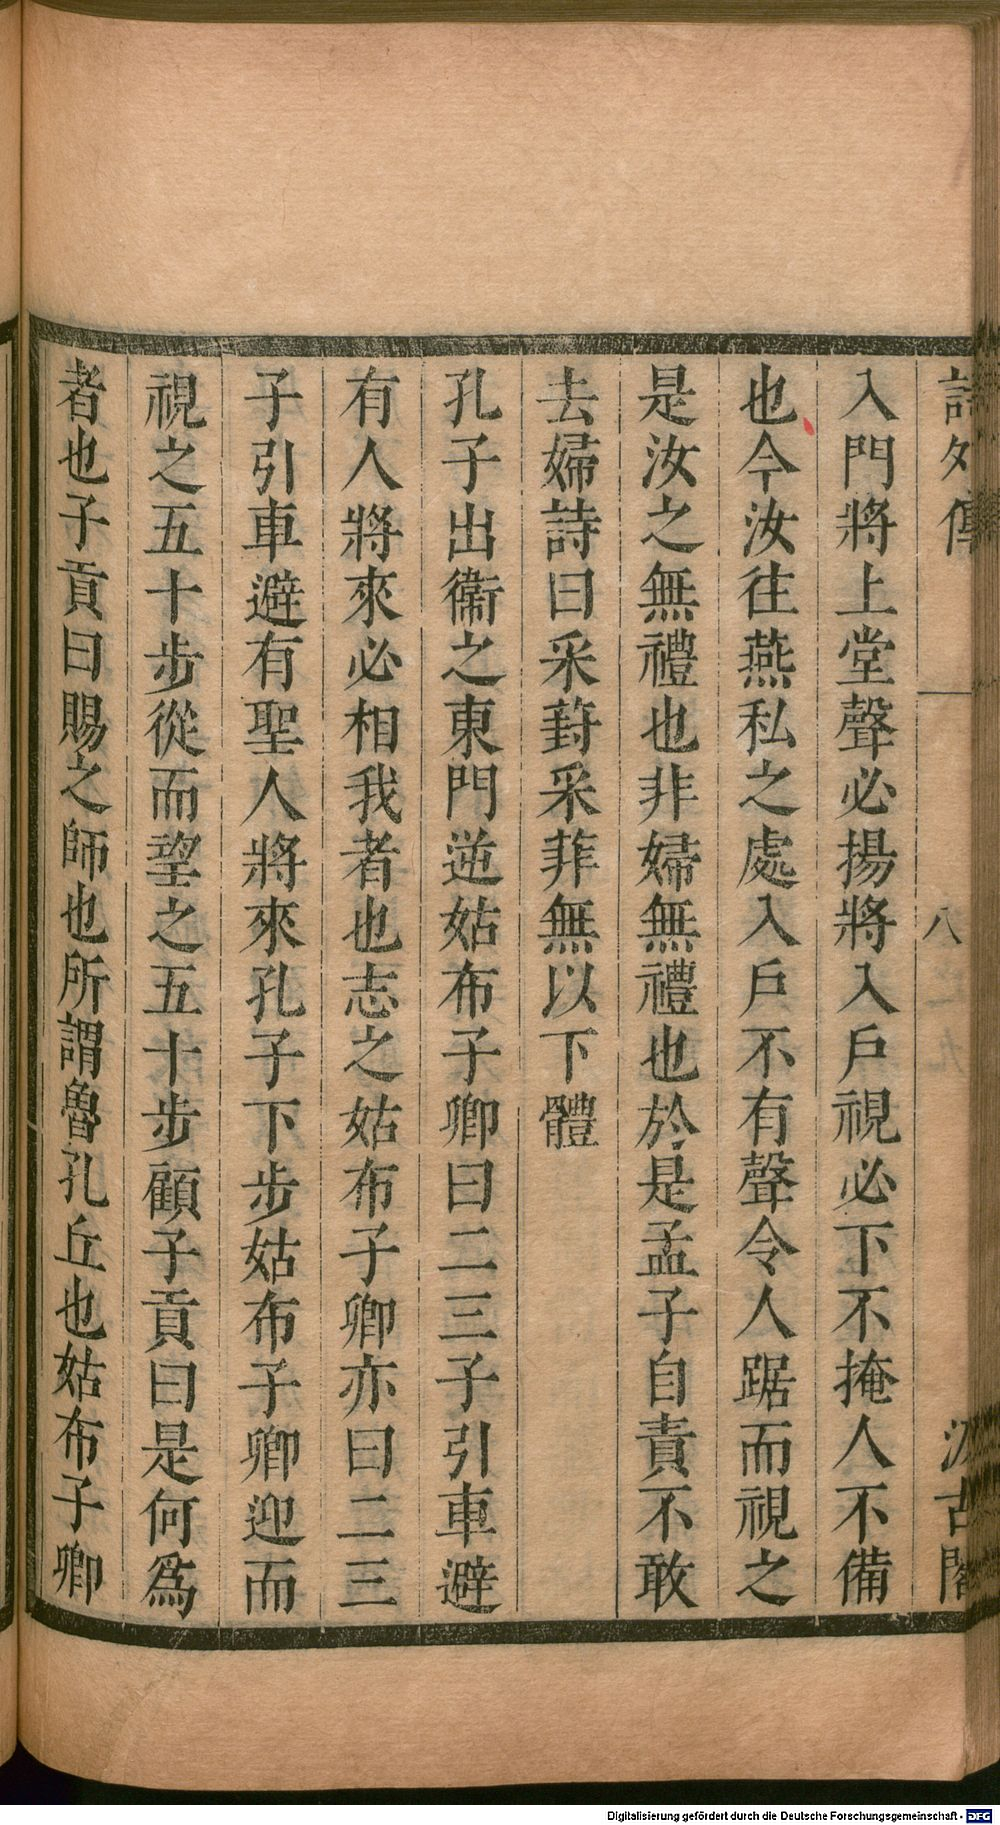 詩外傳 八 汲古閣
入門將上堂聲必揚將入戶視必下不掩人不備
也今汝往燕私之處入戶不有聲令人踞而視之
是汝之無禮也非婦無禮也於是孟子自責不敢
去婦詩曰采葑采菲無以下體
孔子出衞之東門逆姑布子卿曰二三子引車避
有人將來必相我者也志之姑布子卿亦曰二三
子引車避有聖人將來孔子下步姑布子卿迎而
視之五十步從而望之五十步顧子貢曰是何爲
者也子貢曰賜之師也所謂魯孔丘也姑布子卿
Digitalisierung gefördert durch die Deutsche Forschungsgemeinschaft - DFG